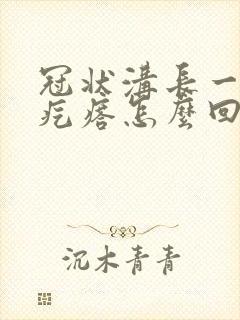 冠状溝長一
疙瘩怎麼回
沉木青青